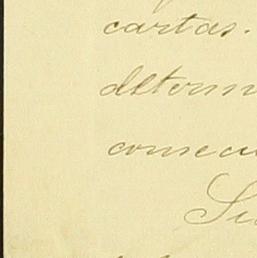 cartas.
determin
consecu
Su